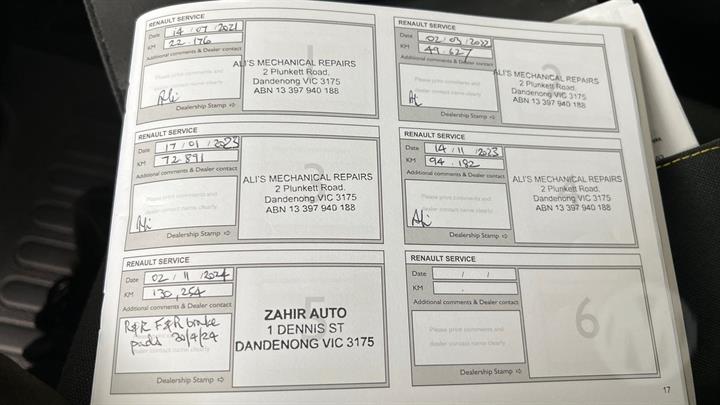 RENAULT SERVICE
Date 14 / 07 / 2021
KM 22.176
Additional comments & Dealer contact
Please print comments and
dealer contact name clearly
Ali
Dealership Stamp ⇨
1
ALI'S MECHANICAL REPAIRS
2 Plunkett Road,
Dandenong VIC 3175
ABN 13 397 940 188
RENAULT SERVICE
Date 02 / 03 / 2022
KM 49.627
Additional comments & Dealer contact
Please print comments and
dealer contact name clearly
Ali
Dealership Stamp ⇨
2
ALI'S MECHANICAL REPAIRS
2 Plunkett Road,
Dandenong VIC 3175
ABN 13 397 940 188
RENAULT SERVICE
Date 17 / 01 / 2023
KM 72.891
Additional comments & Dealer contact
Please print comments and
dealer contact name clearly
Ali
Dealership Stamp ⇨
3
ALI'S MECHANICAL REPAIRS
2 Plunkett Road,
Dandenong VIC 3175
ABN 13 397 940 188
RENAULT SERVICE
Date 14 / 11 / 2023
KM 94.182
Additional comments & Dealer contact
Please print comments and
dealer contact name clearly
Ali
Dealership Stamp ⇨
4
ALI'S MECHANICAL REPAIRS
2 Plunkett Road,
Dandenong VIC 3175
ABN 13 397 940 188
RENAULT SERVICE
Date 02 / 11 / 2024
KM 130,254
Additional comments & Dealer contact
R&R F&R brake
pads 30/4/24
dealer contact name clearly
Dealership Stamp ⇨
5
ZAHIR AUTO
1 DENNIS ST
DANDENONG VIC 3175
RENAULT SERVICE
Date / /
KM .
Additional comments & Dealer contact
Please print comments and
dealer contact name clearly
Dealership Stamp ⇨
6
17